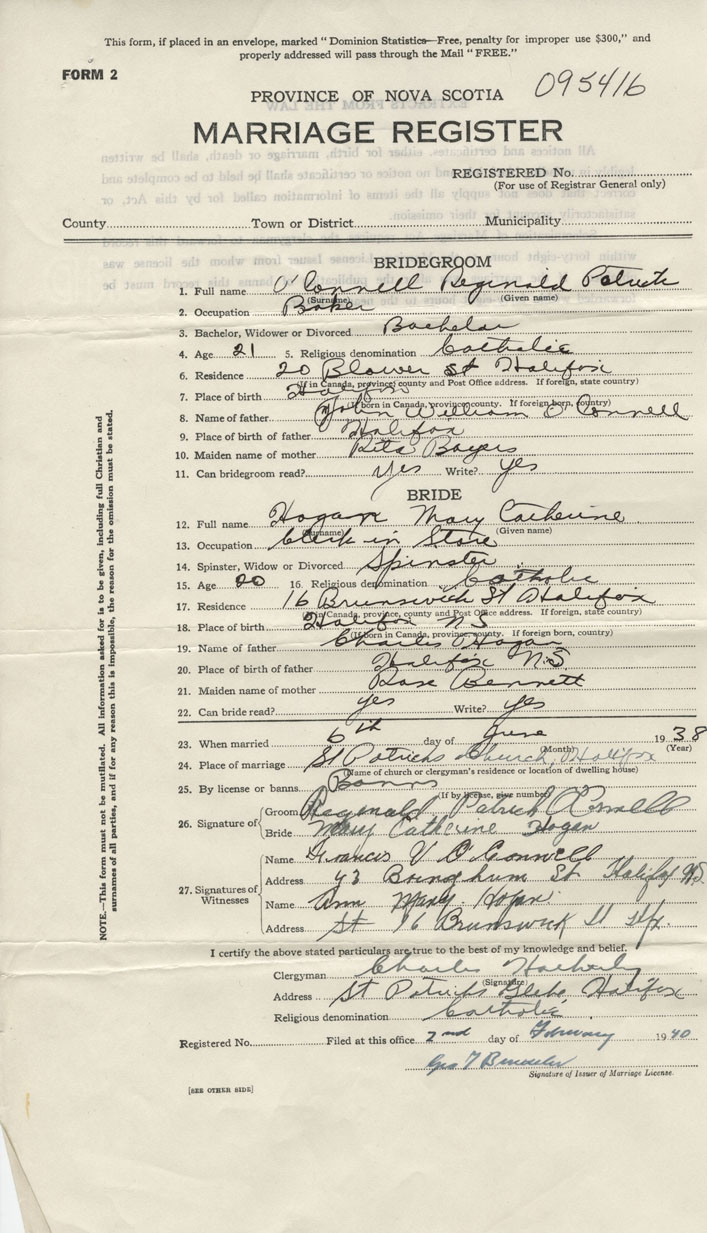 This form, if placed in an envelope, marked "Dominion Statistics—Free, penalty for improper use $300," and
properly addressed will pass through the Mail "FREE."
FORM 2
095416
PROVINCE OF NOVA SCOTIA
MARRIAGE REGISTER
REGISTERED No.
(For use of Registrar General only)
County Town or District Municipality
BRIDEGROOM
1. Full name O'Connell Reginald Patrick
(Surname) (Given name)
2. Occupation Baker
3. Bachelor, Widower or Divorced Bachelor
4. Age 21 5. Religious denomination Catholic
6. Residence 20 Blower St Halifax
(If in Canada, province, county and Post Office address. If foreign, state country)
7. Place of birth Halifax
(If born in Canada, province, county. If foreign born, country)
8. Name of father John William O'Connell
9. Place of birth of father Halifax
10. Maiden name of mother Rita Boyers
11. Can bridegroom read? yes Write? yes
BRIDE
12. Full name Hogan Mary Catherine
(Surname) (Given name)
13. Occupation Clerk in Store
14. Spinster, Widow or Divorced Spinster
15. Age 20 16. Religious denomination Catholic
17. Residence 16 Brunswick St Halifax
(If in Canada, province, county and Post Office address. If foreign, state country)
18. Place of birth Halifax N S
(If born in Canada, province, county. If foreign born, country)
19. Name of father Charles Hogan
20. Place of birth of father Halifax N.S
21. Maiden name of mother Rose Bennett
22. Can bride read? yes Write? yes
23. When married 6th day of June 1938
(Month) (Year)
24. Place of marriage St Patricks Church, Halifax
(Name of church or clergyman's residence or location of dwelling house)
25. By license or banns Banns
(If by license, give number)
26. Signature of
Groom Reginald Patrick O'Connell
Bride Mary Catherine Hogan
27. Signatures of Witnesses
Name Francis V O'Connell
Address 43 St Halifax N.S.
Name Ann Mary Hogan
Address St 16 Brunswick St Hfx.
I certify the above stated particulars are true to the best of my knowledge and belief.
Clergyman Charles
(Signature)
Address St Patricks Glebe Halifax
Religious denomination Catholic
Registered No. Filed at this office 2nd day of February 1940
Geo
Signature of Issuer of Marriage License.
[SEE OTHER SIDE]
NOTE.—This form must not be mutilated. All information asked for is to be given, including full Christian and
surnames of all parties, and if for any reason this is impossible, the reason for the omission must be stated.